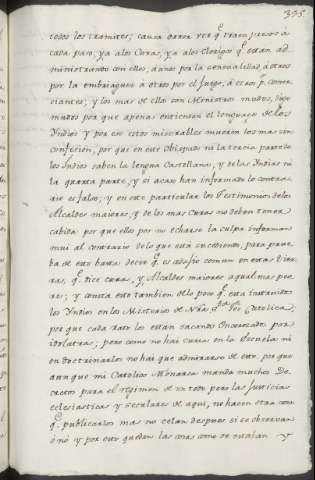 335
todos los tramites; causa orror ver q.e traen presos à
cada paso; ya alos Curas, ya alos Clerigos q.e estan ad-
ministrando con ellos, à unos por la sensualidad, à otros
por la embriaguez à otros por el Juego, à otros p.r comer
ciantes; y los mas de ello son Ministros mudos, digo
mudos por que apenas entienden el lenguaje de los
Yndios y por eso estos miserables mueren los mas sin
confesion, por que en este Obispado ni la tercia parte de
los Indios saben la lengua Castellana, y delas Yndias ni
la quarta parte, y si acaso han informado lo contra
rio es falso; y en este particular los Testimonios delos
Alcaldes maiores, y de los mas Curas no deben tener
cabida por que ellos por no echarse la culpa informan
mui al contrario de lo que está sucediendo, para prue
ba de esto basta decir q.e es adagio comun en estas Tier
ras, q.e dice cura, y Alcaldes maiores aqualmas peo
res; y consta esto tambien dello poco q.e esta instruidos
los Yndios en los Misterios de Nrâ S.ta Fee Catolica;
por que cada rato los estan sacando Encorozados por
idolatras; pero como no hai cura en la Escuela ni
en doctrinarlos no hai que admirarse de esto por que
aunque mi Catolico Monarca manda muchos De
cretos para el regimen de un todo pero las Justicias
eclesiasticas y seculares de aqui, no hacen otra cosa
q.e publicarlos mas no celan despues si se observan
ò nó y por esto quedan las cosas como se estaban y